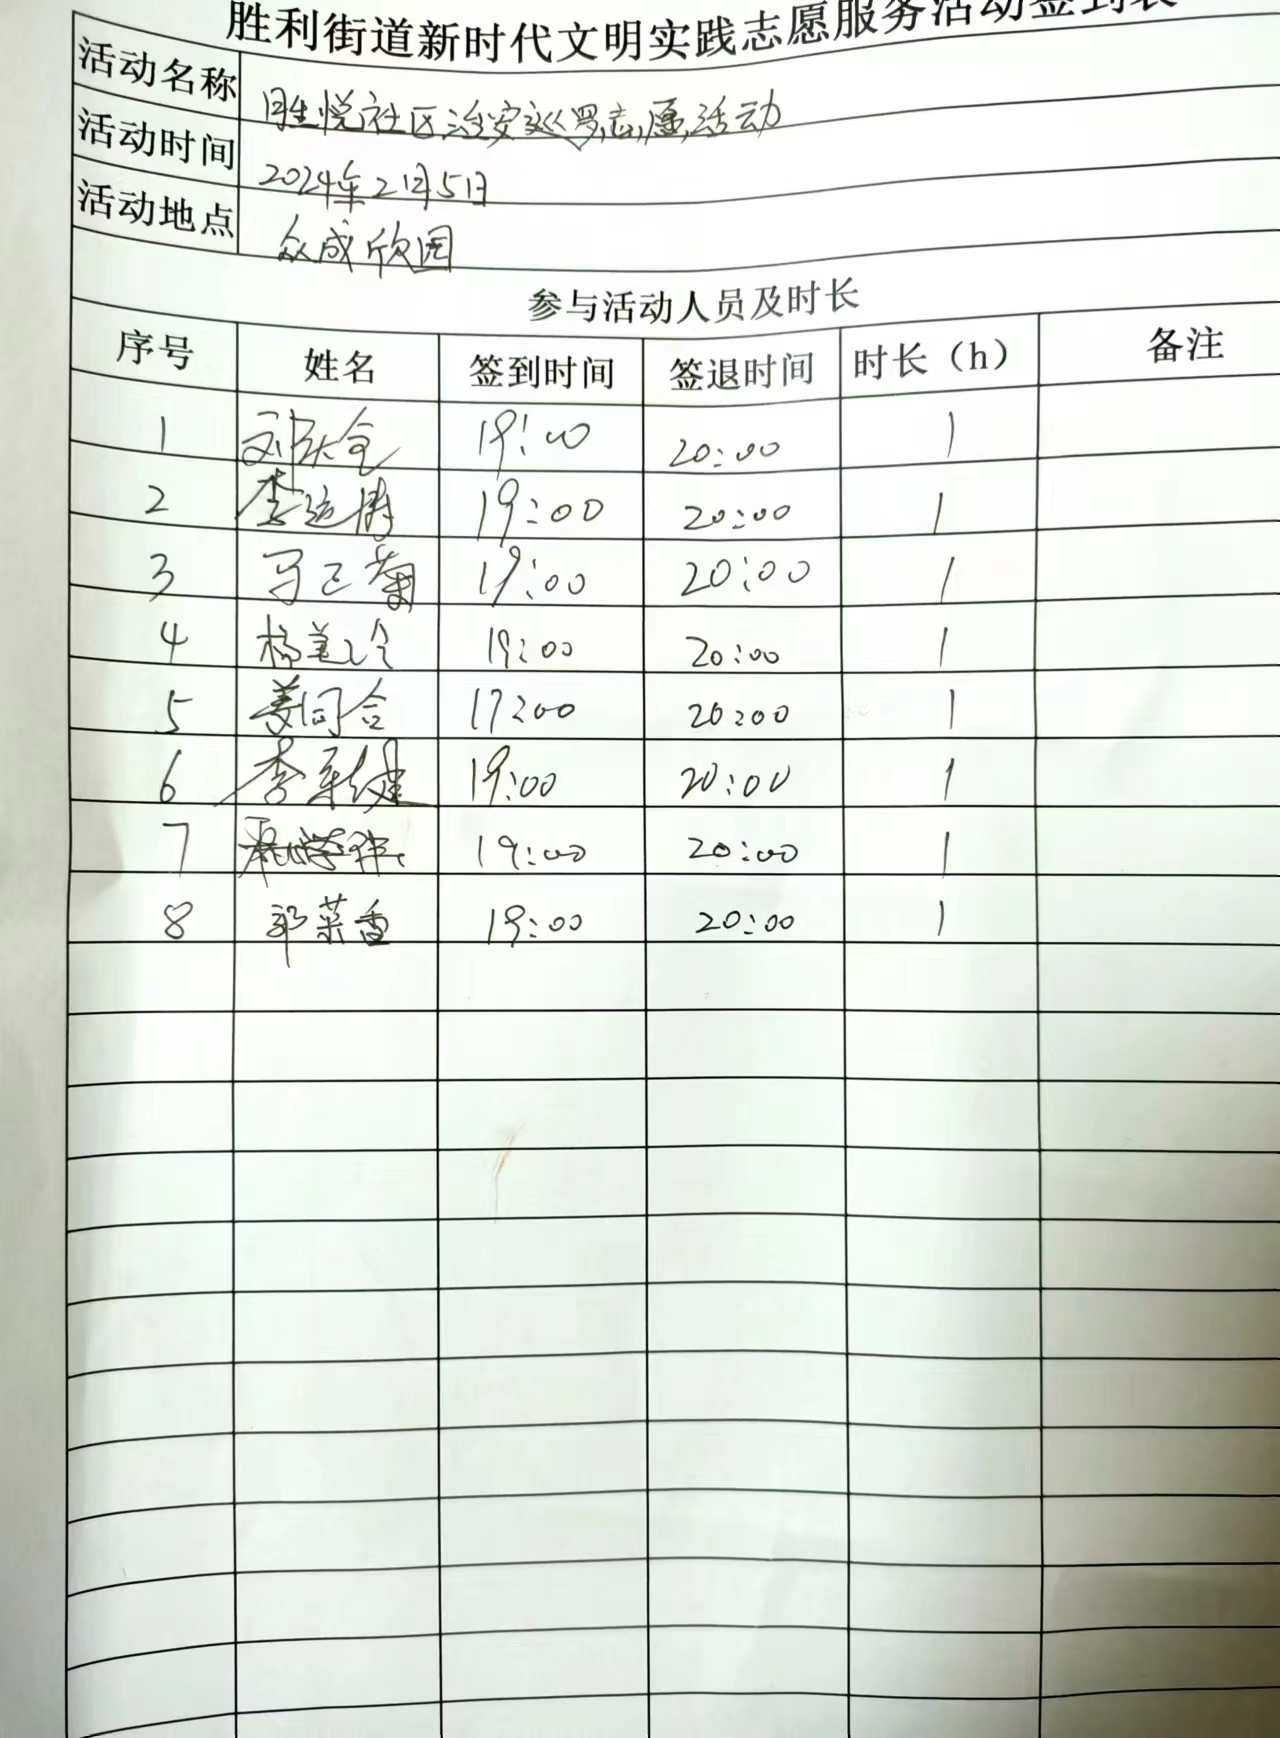 胜利街道新时代文明实践志愿服务活动签到表
活动名称 胜悦社区治安巡罗志愿活动
活动时间 2024年2月5日
活动地点 众成欣园
参与活动人员及时长
序号 姓名 签到时间 签退时间 时长（h） 备注
1 19:00 20:00 1
2 李运涛 19:00 20:00 1
3 马巳菊 19:00 20:00 1
4 杨美玲 19:00 20:00 1
5 姜同合 17:00 20:00 1
6 李彩健 19:00 20:00 1
7 19:00 20:00 1
8 郭菜香 19:00 20:00 1